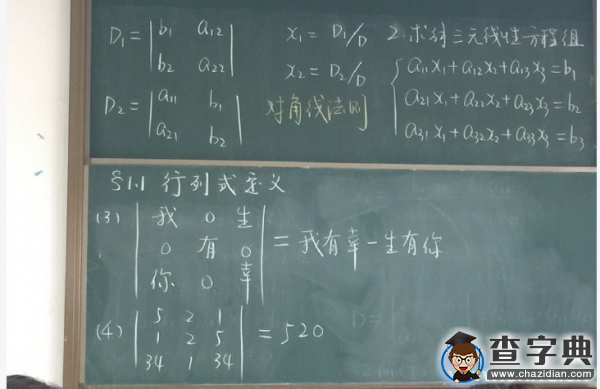 D₁ = | b₁ a₁₂ |
| b₂ a₂₂ |
D₂ = | a₁₁ b₁ |
| a₂₁ b₂ |
x₁ = D₁/D
x₂ = D₂/D
对角线法则
2. 求对三元线性方程组
a₁₁x₁+a₁₂x₂+a₁₃x₃=b₁
a₂₁x₁+a₂₂x₂+a₂₃x₃=b₂
a₃₁x₁+a₃₂x₂+a₃₃x₃=b₃
§1.1 行列式定义
(3) | 我 0 生 |
| 0 有 0 | = 我有幸一生有你
| 你 0 幸 |
(4) | 5 2 1 |
| 1 2 5 | = 520
| 34 1 34 |
查字典
www.chazidian.com